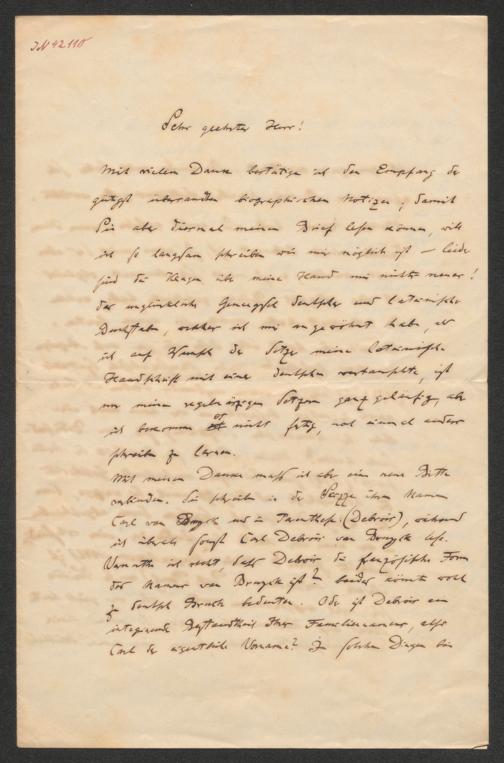 IN 42110
Sehr geehrter Herr!
Mit vielem Danke bestätige ich den Empfang der
gütigst übersandten biographischen Notizen; damit
Sie aber diesmal meinen Brief lesen können, will
ich so langsam schreiben wie mir möglich ist — leider
sind die Klagen über meine Hand mir nichts neues!
Der unglückliche Gemengsel deutscher und lateinischer
Buchstaben, welcher ich mir angewöhnt habe, als
ich auf Wunsch der Setzer meine lateinische
Handschrift mit einer deutschen vertauschte, ist
nur meinen regelmässigen Setzern ganz geläufig, aber
ich bekomme es nicht fertig, noch einmal anders
schreiben zu lernen.
Mit meinem Danke muß ich aber eine neue Bitte
verbinden. Sie schreiben in der Skizze Ihren Namen
Carl van Bruyck und in Parenthese (Debrois), während
ich überall sonst Carl Debrois van Bruyck lese.
Vermuthe ich recht, daß Debrois die französische Form
des Namens van Bruyck ist? beides könnte wohl
zu deutsch Bruck bedeuten. Oder ist Debrois ein
integrirender Bestandtheil Ihres Familiennamens, also
Carl der eigentliche Vorname? In solchen Dingen bin